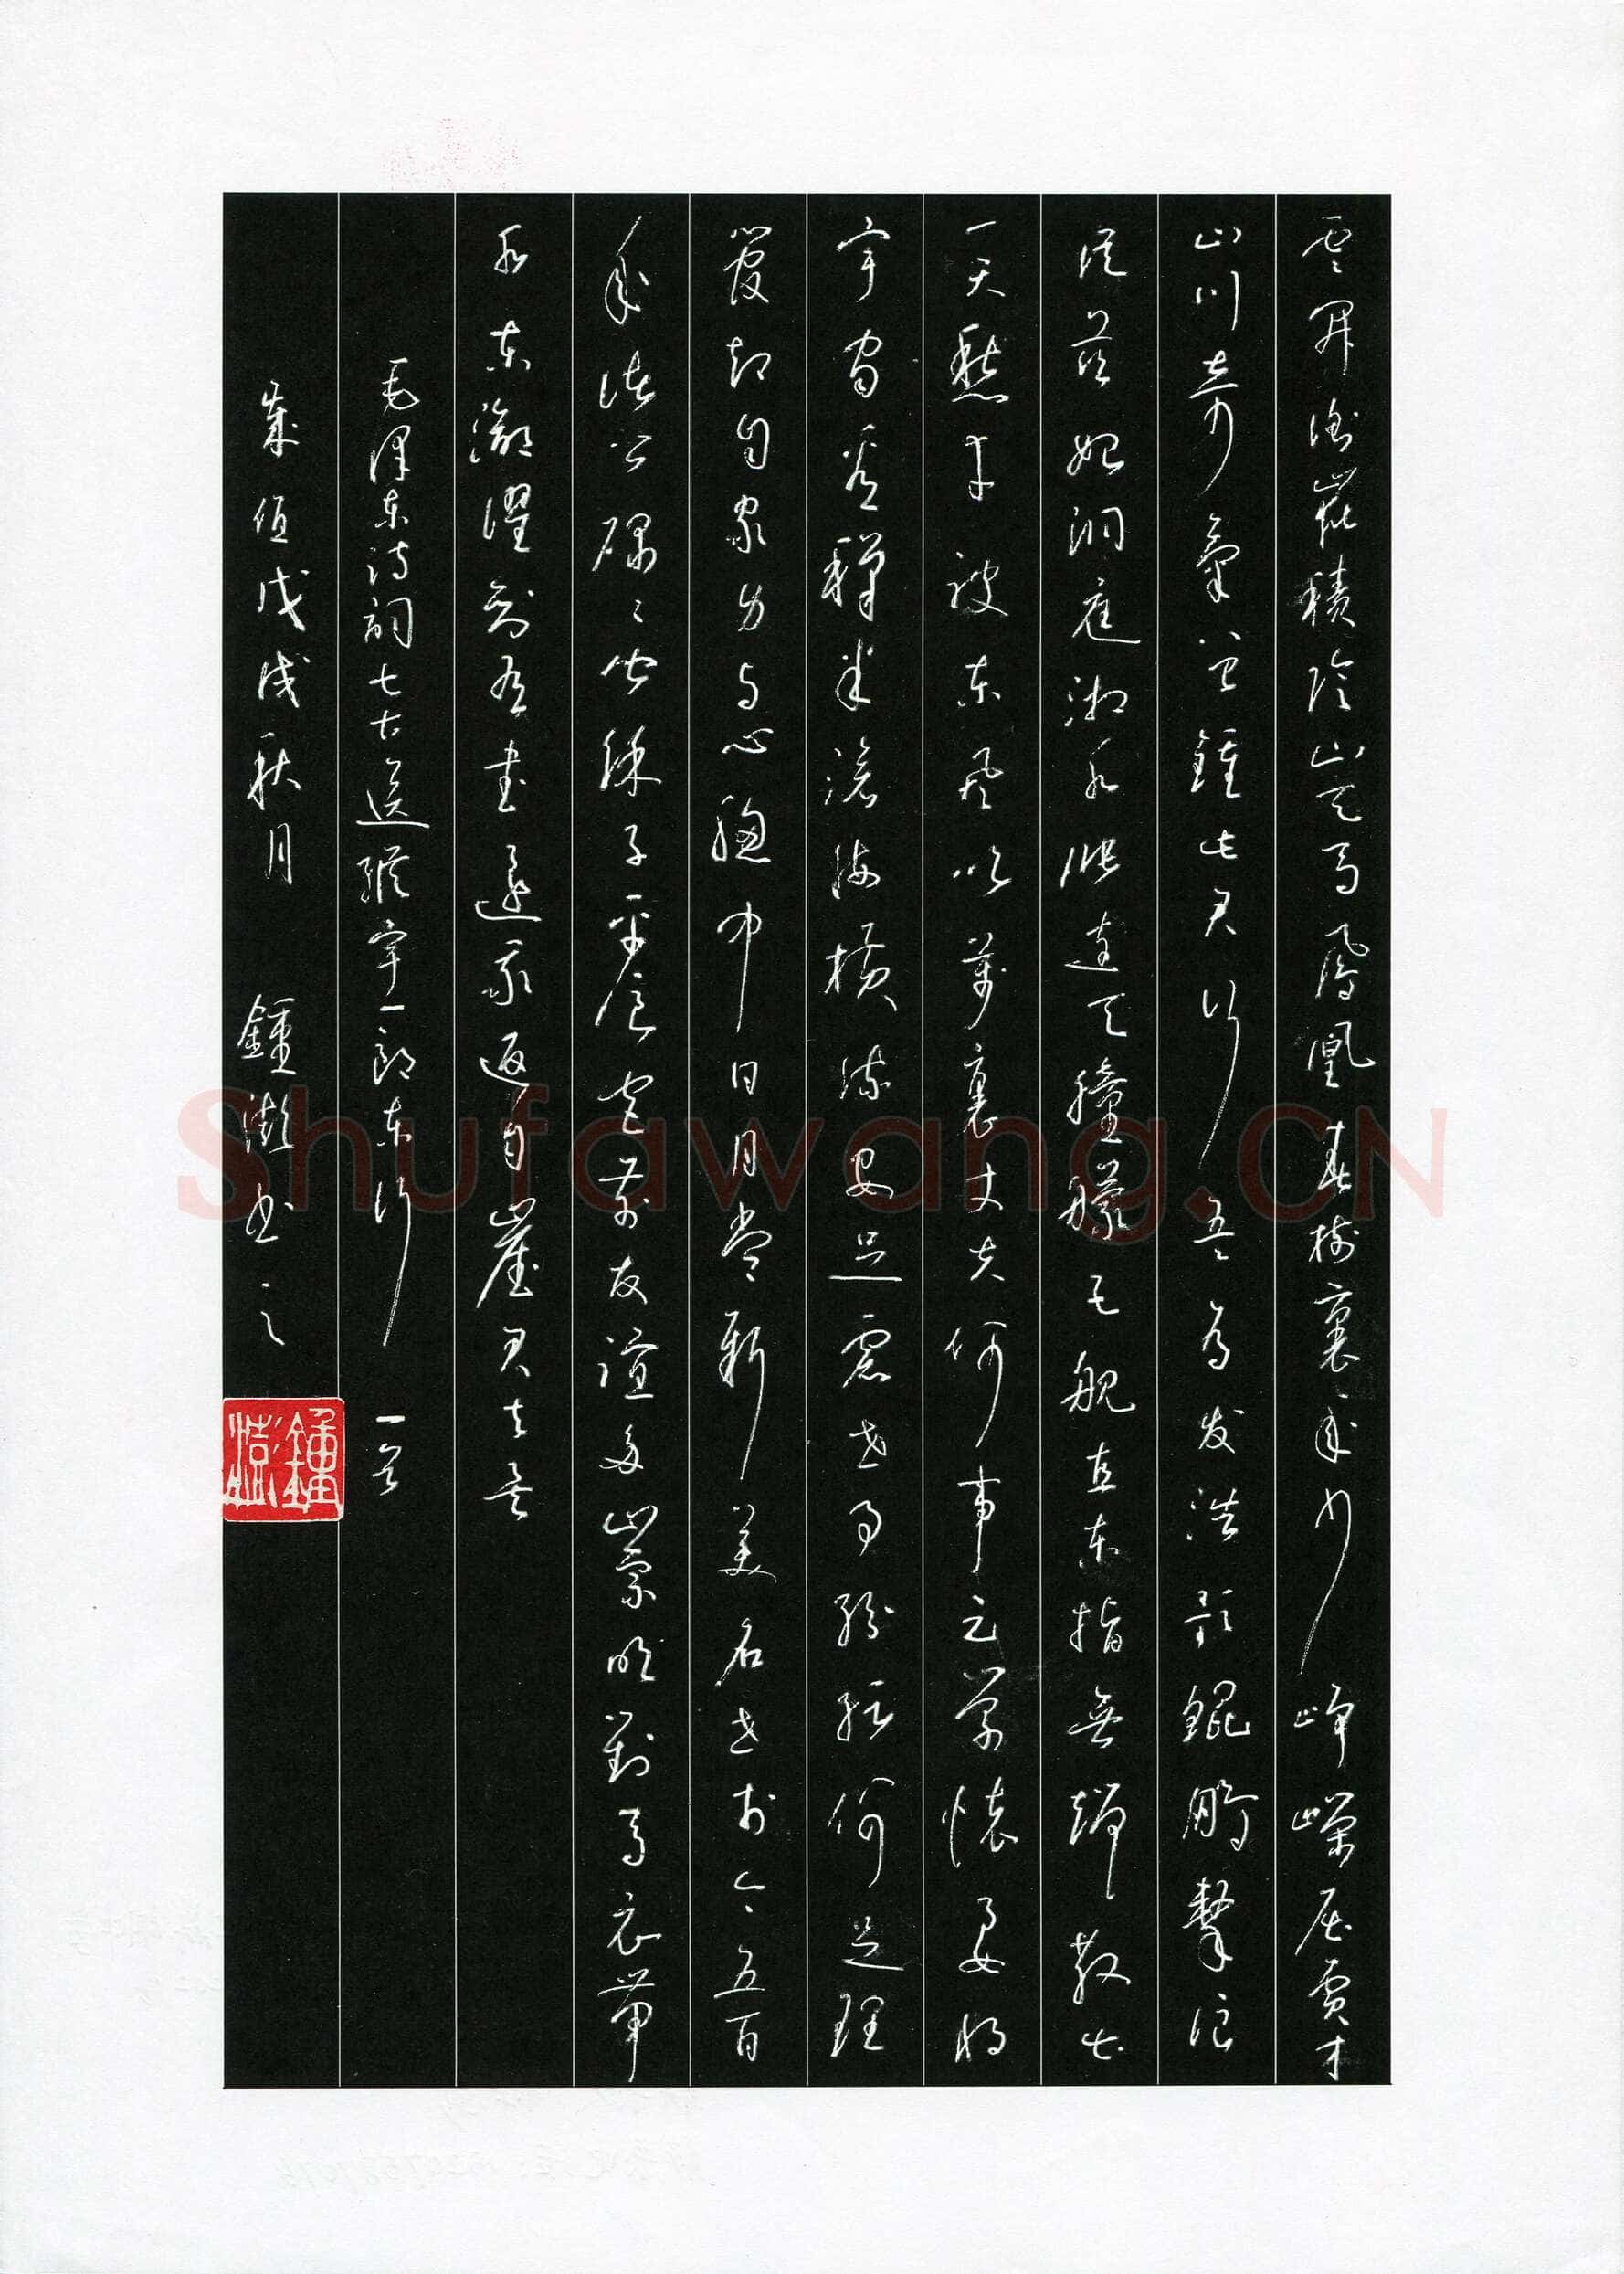 雲開衡嶽積陰止天馬鳳凰春樹裏年少崢嶸屈賈才
山川奇氣曾鍾此君行吾為发浩歌鯤鵬擊浪
從茲始洞庭湘水漲連天艟艨巨艦直東指無端散出
一天愁幸被東風吹萬裏丈夫何事足縈懷要將
宇宙看稊米滄海橫流安足慮世事紛紜何足理
管卻自家身與心胸中日月常新美名世於今五百
年諸公碌々皆餘子平浪宮前友誼多崇明對馬衣帶
水東瀛濯劍有書還我返自崖君去矣
毛澤東詩詞七古送縱宇一郎東行 一首
歲值戊戌秋月 鍾澍书之
鍾澍
Shufawang.CN